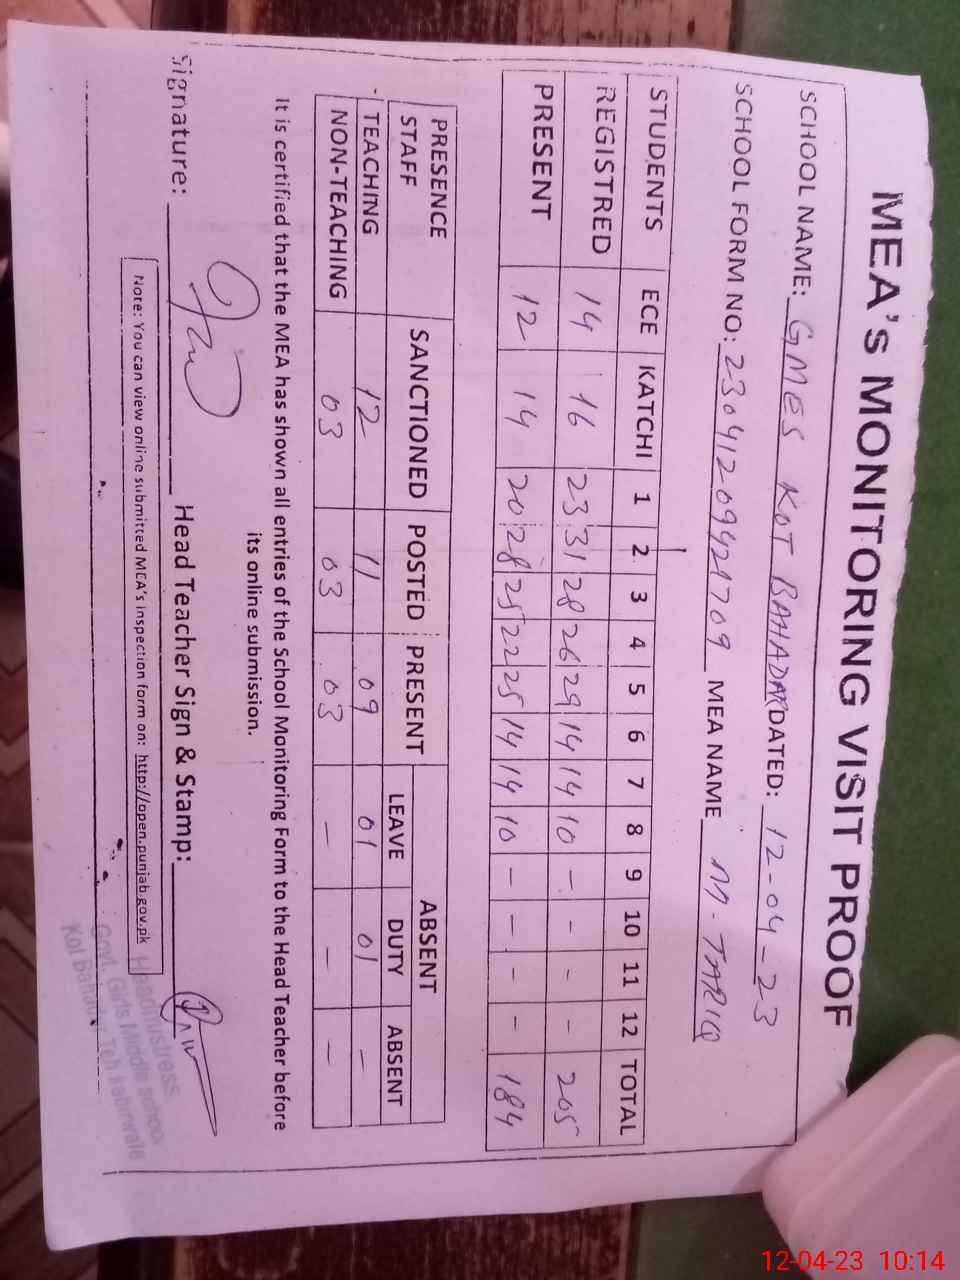 MEA'S MONITORING VISIT PROOF
SCHOOL NAME: GMES KOT BAHADAR DATED: 12-04-23
SCHOOL FORM NO: 23041209421709 MEA NAME M. TARIQ
STUDENTS ECE KATCHI 1 2 3 4 5 6 7 8 9 10 11 12 TOTAL
REGISTRED 14 16 23 31 28 26 29 14 14 10 - - - - 205
PRESENT 12 14 20 28 25 22 25 14 14 10 - - - - 184
PRESENCE STAFF SANCTIONED POSTED PRESENT ABSENT
LEAVE DUTY ABSENT
TEACHING 12 11 09 01 01 -
NON-TEACHING 03 03 03 - - -
It is certified that the MEA has shown all entries of the School Monitoring Form to the Head Teacher before
its online submission.
Signature: Head Teacher Sign & Stamp:
Note: You can view online submitted MEA's inspection form on: http://open.punjab.gov.pk
Headmistress
Govt. Girls Middle school
Kot Bahadar Teh Kabirwala
12-04-23 10:14